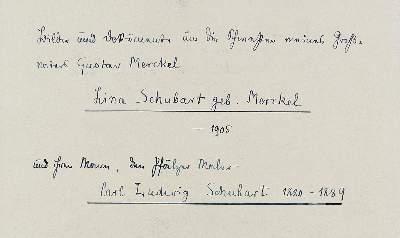 Bilder und Dokumente an die Schwester meines Groß-
vaters Gustav Merckel
Lina Schubart geb. Merckel
1905
und ihren Mann, den Pfälzer Maler
Carl Ludwig Schubart 1820 - 1889